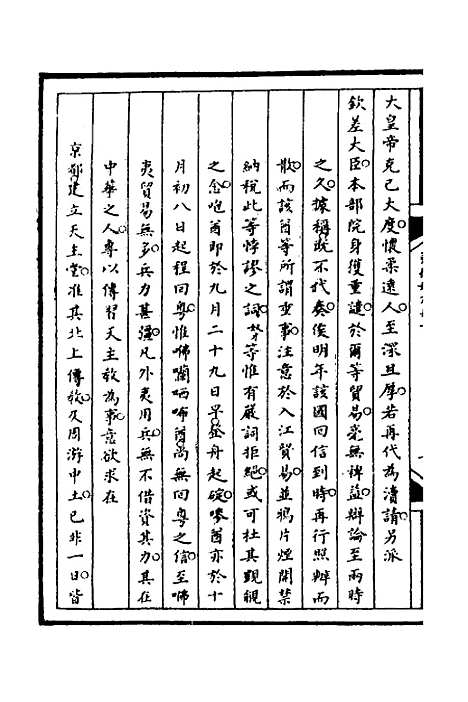 大皇帝克己大度懷柔遠人至深且厚若再代為瀆請另派
欽差大臣本部院身獲重譴於爾等貿易毫無裨益辯論至兩時
之久據稱既不代奏俟明年該國回信到時再行照辦而
散而該酋等所謂重事注意於入江貿易並鴉片煙開禁
納稅此等悖謬之詞等惟有嚴詞拒絕或可杜其覬覦
之念咆酋即於九月二十九日早登舟起碇嘜酋亦於十
月初八日起程回粵惟咈囒哂咘酋尚無回粵之信至咈
夷貿易無多兵力甚彊凡外夷用兵無不借資其力其在
中華之人專以傳習天主教為事意欲求在
京都建立天主堂准其北上傳教及周游中土已非一日皆